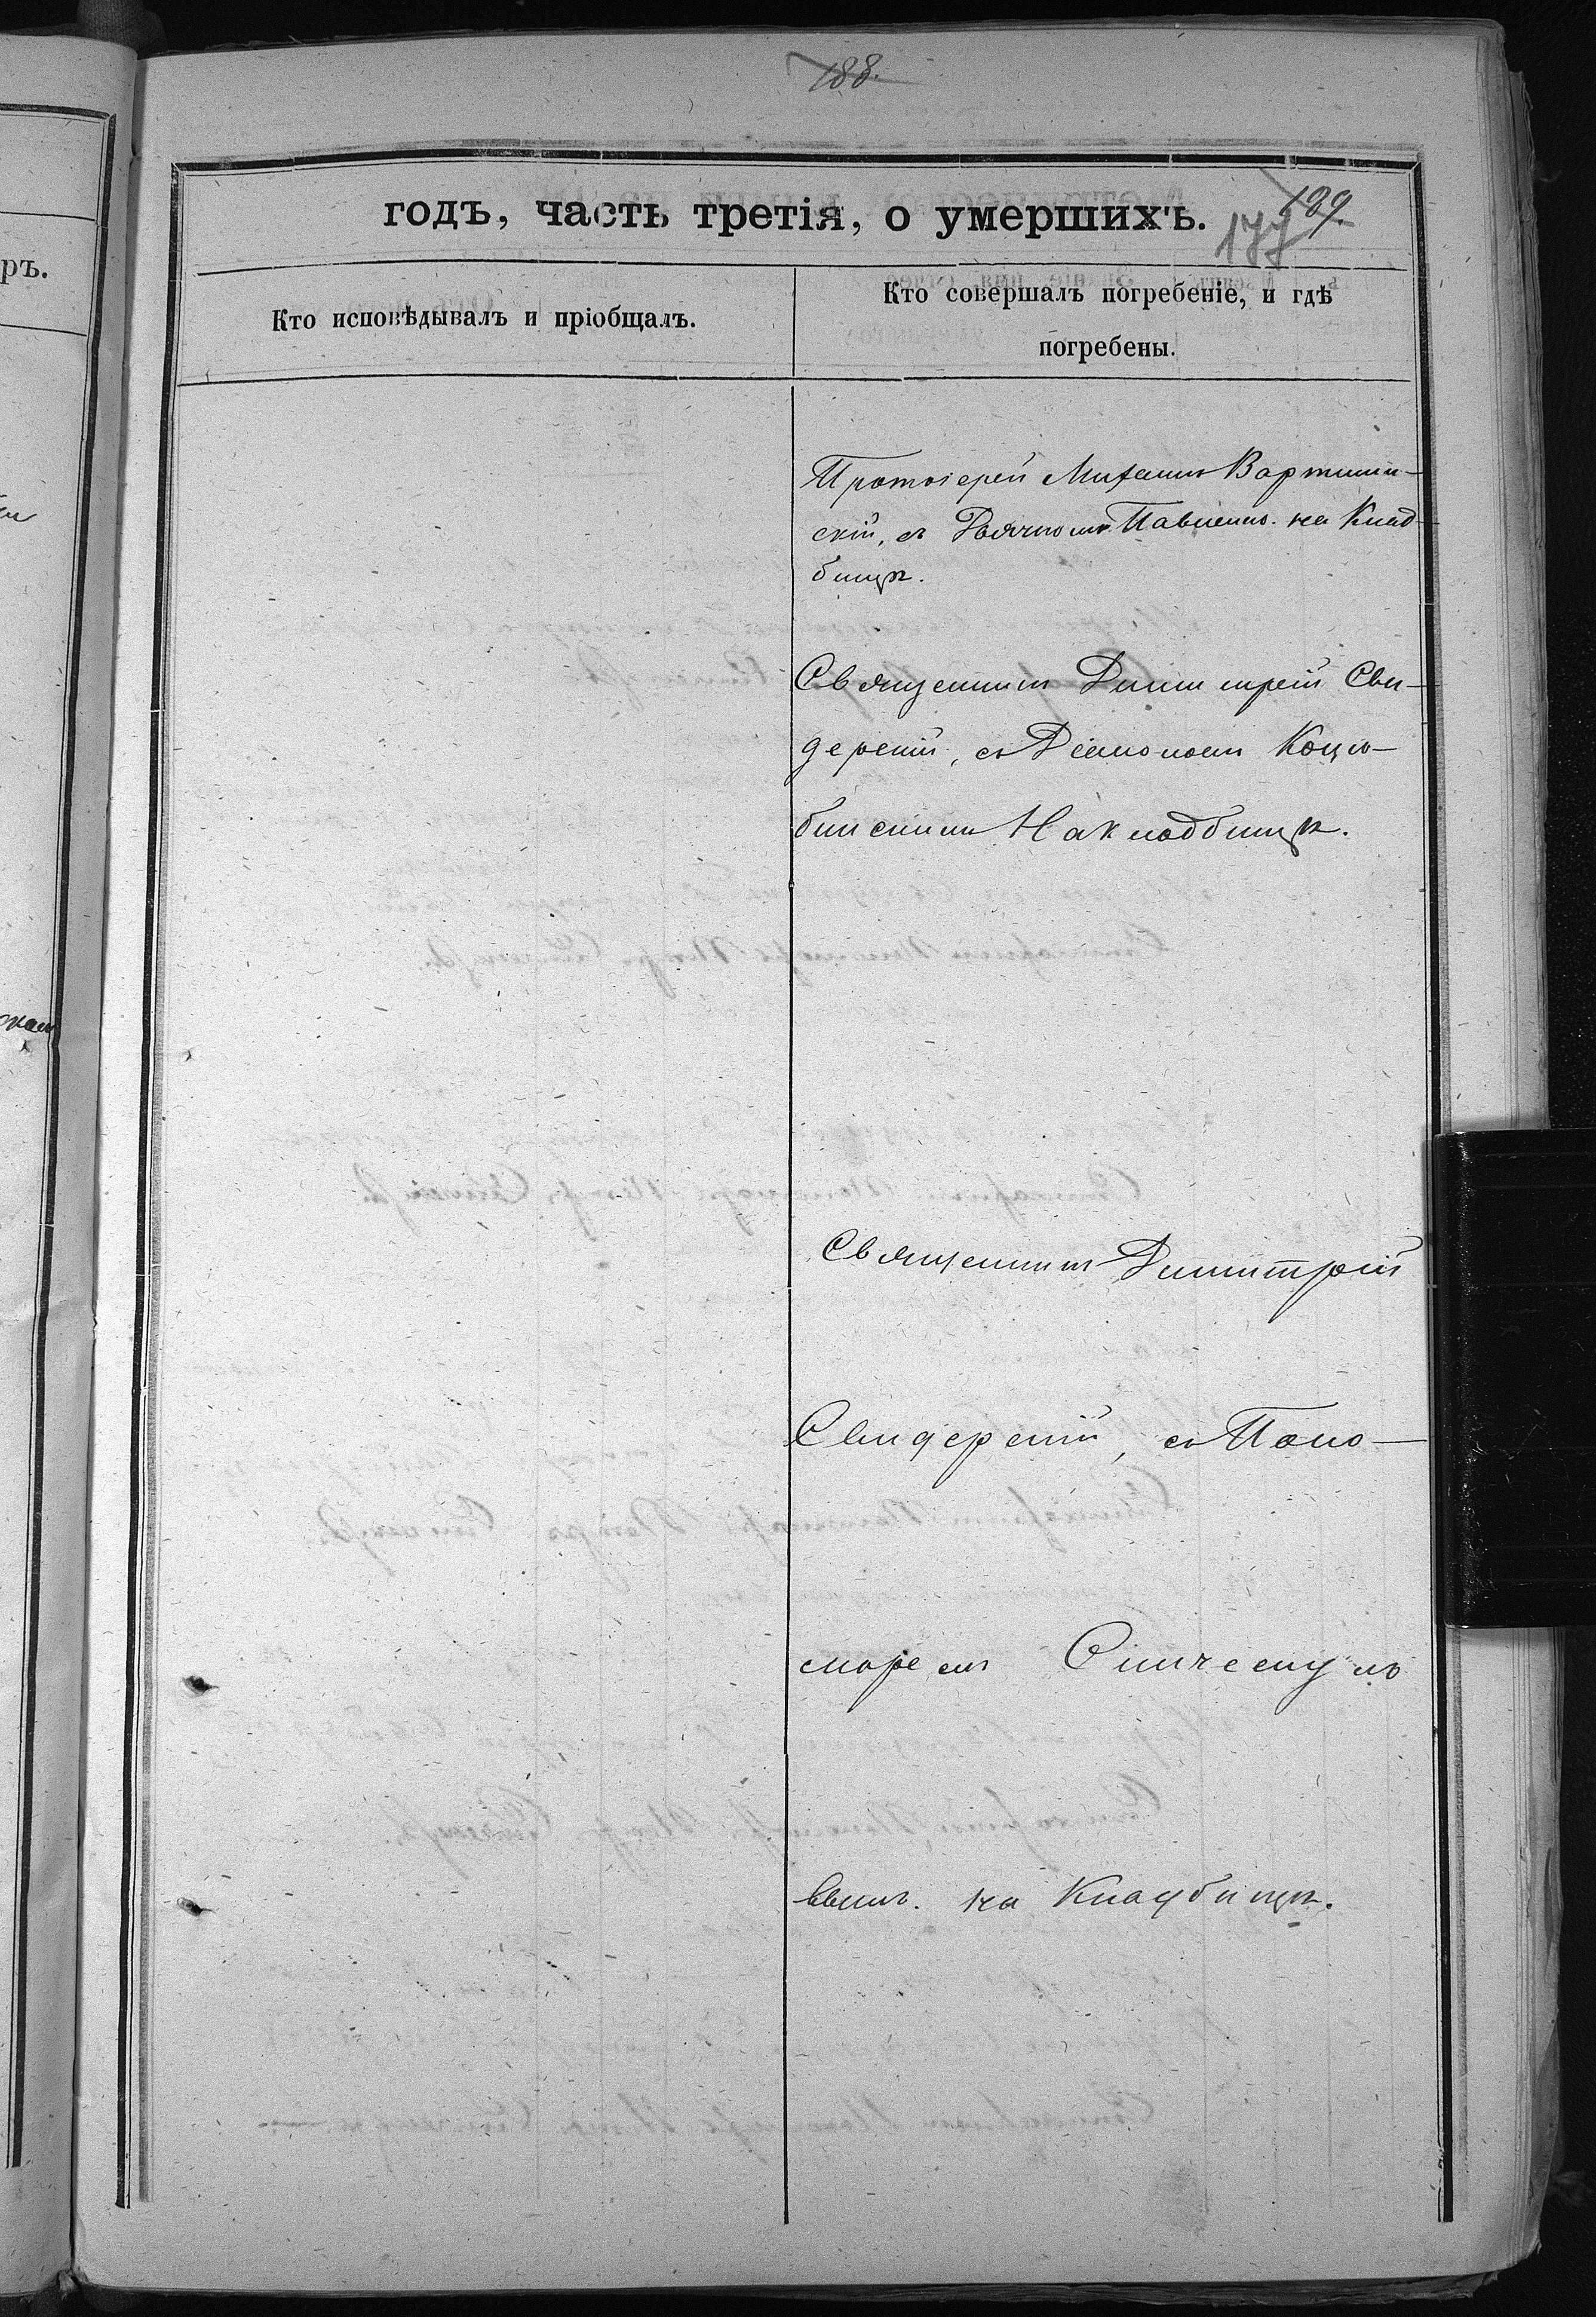 188.
годъ, часть третія, о умершихъ.
189.
177
ръ.
Кто исповѣдывалъ и пріобщалъ.
Кто совершалъ погребеніе, и гдѣ
погребены.
Протоіерей Михаилъ
скій, съ Дьячкомъ Павленко. на Клад-
бищѣ.
Священникъ Димитрій Сви-
дерскій, съ Діакономъ Коцю-
бинскимъ На кладбищѣ.
Священникъ Димитрій
Свидерскій, съ Поно-
маремъ
на Кладбищѣ.